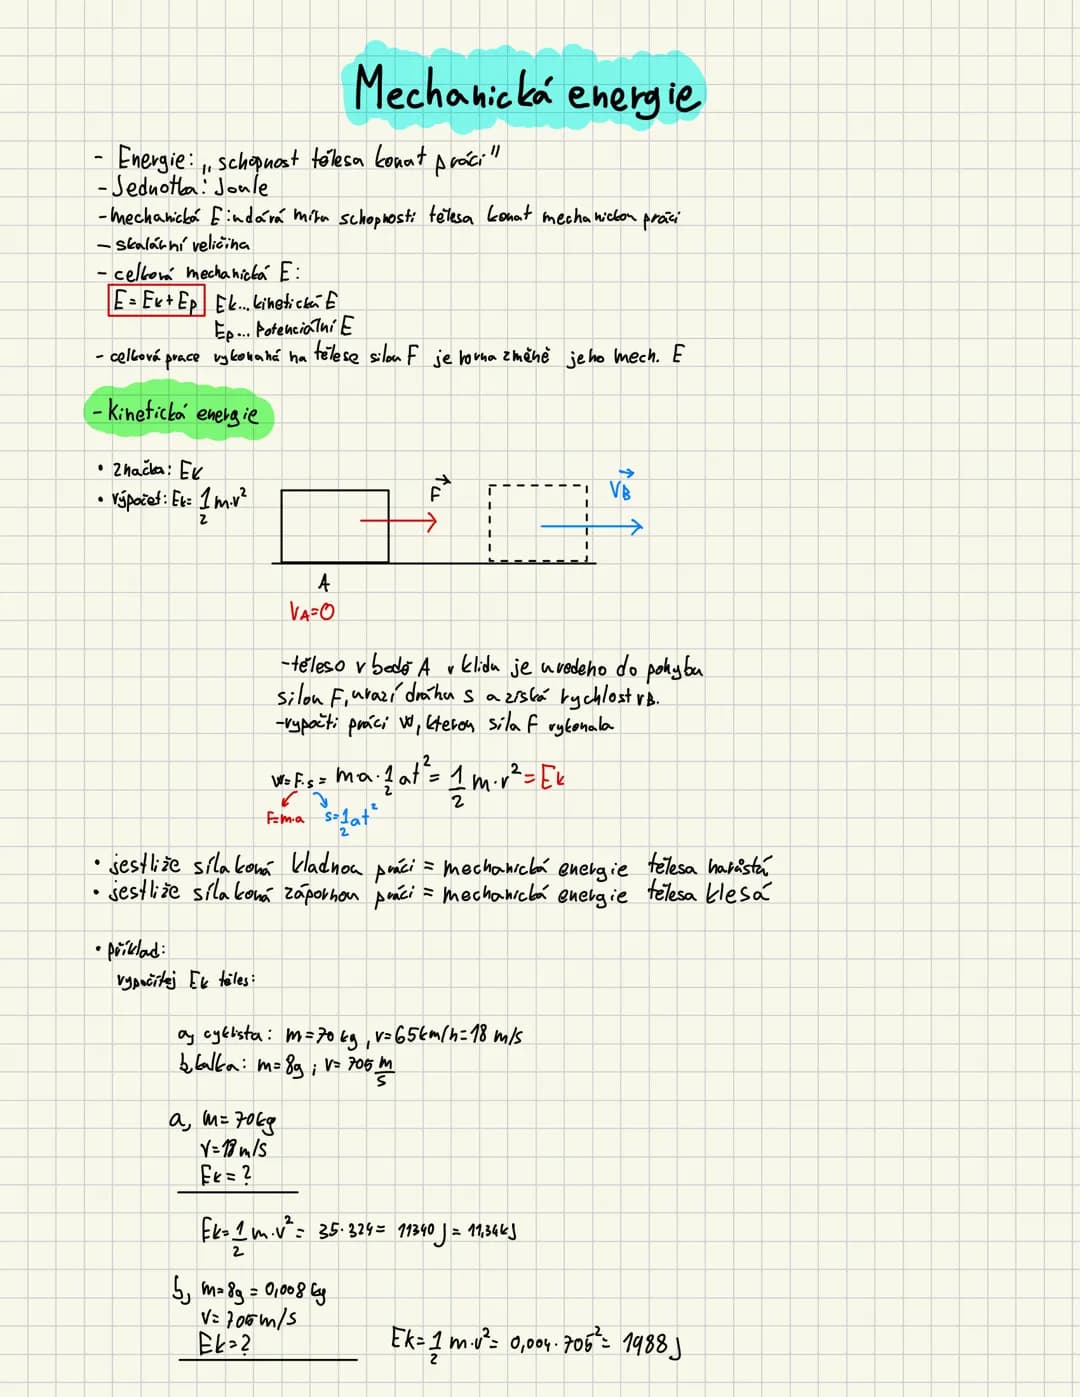 Mechanická energie
- Energie: „schopnost tělesa konat práci"
- Jednotka: Joule
- mechanická E: udává míru schopnosti tělesa konat mechanickou práci
- skalární veličina
- celková mechanická E:
E = Ek + Ep Ek... kinetická E
Ep... Potenciální E
- celková prace vykonaná na tělese silou F je rovna změně jeho mech. E
- kinetická energie
• značka: Ek
• výpočet: Ek= 1/2 m·v²
F
VB
A
VA=0
- těleso v bodě A v klidu je uvedeno do pohybu
silou F, urazí dráhu s a získá rychlost vB.
- vypočti práci W, kterou síla F vykonala
W=F·s = ma·1/2 at² = 1/2 m·v² = Ek
F=m·a s=1/2 at²
• jestliže síla koná kladnou práci = mechanická energie tělesa narůstá
• jestliže síla koná zápornou práci = mechanická energie tělesa klesá
• příklad:
vypočítej Ek těles:
a, cyklista: m=70 kg, v=65km/h=18 m/s
b, kulka: m=8g; v= 705 m/s
a, m= 70kg
v=18 m/s
Ek = ?
Ek= 1/2 m·v² = 35·324= 11340 J = 11,34kJ
b, m=8g = 0,008 kg
v= 705 m/s
Ek=? Ek= 1/2 m·v² = 0,004·705² = 1988 J